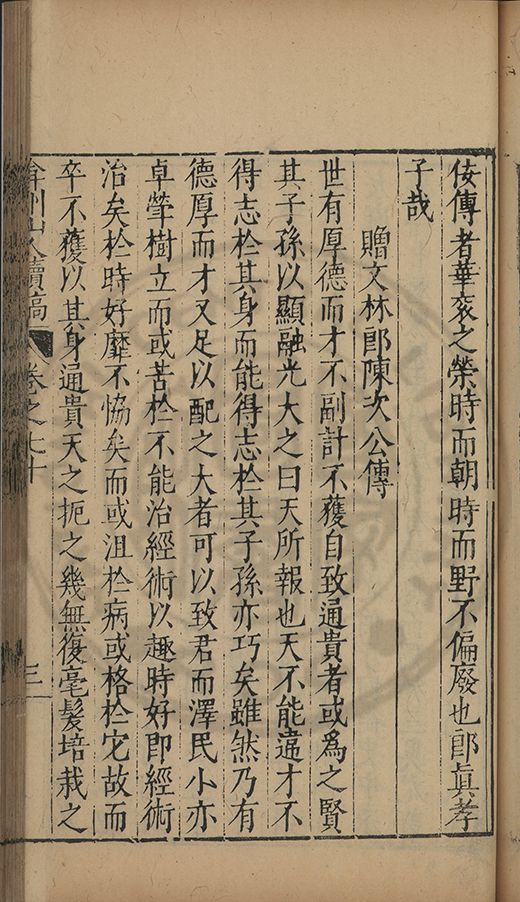 佞傳者華衮之榮時而朝時而野不偏廢也郎眞孝
子哉
贈文林郎陳次公傳
世有厚德而才不副計不獲自致通貴者或爲之賢
其子孫以顯融光大之曰天所報也天不能違才不
得志於其身而能得志於其子孫亦巧矣雖然乃有
德厚而才又足以配之大者可以致君而澤民小亦
卓犖樹立而或苦於不能治經術以趣時好即經術
治矣於時好靡不恊矣而或沮於病或格於它故而
卒不獲以其身通貴天之扼之幾無復毫髮培栽之
弇州山人續稿 卷之七十 三